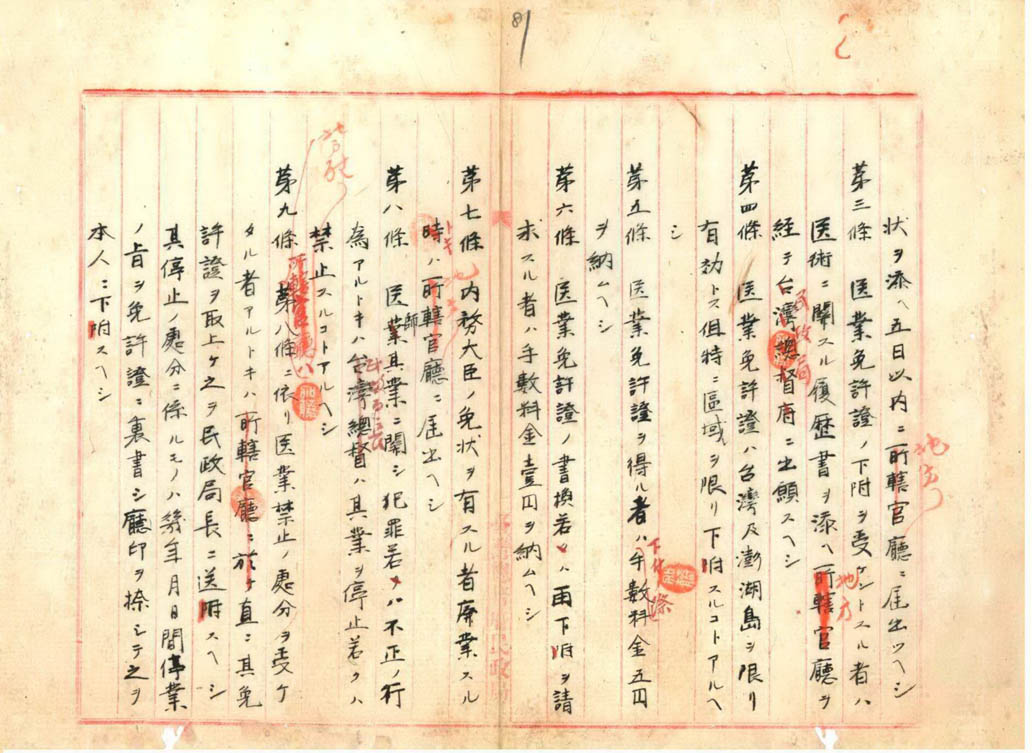 81
状ヲ添ヘ五日以内ニ所轄官廳ニ届出ツヘシ
地方
第三條 医業免許證ノ下附ヲ受ケントスル者ハ
医術ニ関スル履歴書ヲ添ヘ所轄官廳ヲ
地方
経テ台湾總督府ニ出願スヘシ
民政局
第四條 医業免許證ハ台湾及澎湖島ヲ限リ
有効トス但特ニ區域ヲ限リ下附スルコトアルヘ
シ
第五條 医業免許證ヲ得ル者ハ手数料金五円
ヲ納ムヘシ
第六條 医業免許證ノ書換若クハ再下附ヲ請
求スル者ハ手數料金壹円ヲ納ムヘシ
第七條 内務大臣ノ免状ヲ有スル者廃業スル
時ハ所轄官廳ニ届出ヘシ
トキ
地方
第八條 医師其業ニ関シ犯罪若クハ不正ノ行
為アルトキハ台湾總督ハ其業ヲ停止若クハ
禁止スルコトアルヘシ
第九條 第八條ニ依リ医業禁止ノ處分ヲ受ケ
所轄官廳ハ
タル者アルトキハ所轄官廳ニ於テ直ニ其免
許證ヲ取上ケ之ヲ民政局長ニ送附スヘシ
其停止ノ處分ニ係ルモノハ幾年月日間停業
ノ旨ヲ免許證ニ裏書シ廳印ヲ捺シテ之ヲ
本人ニ下附スヘシ